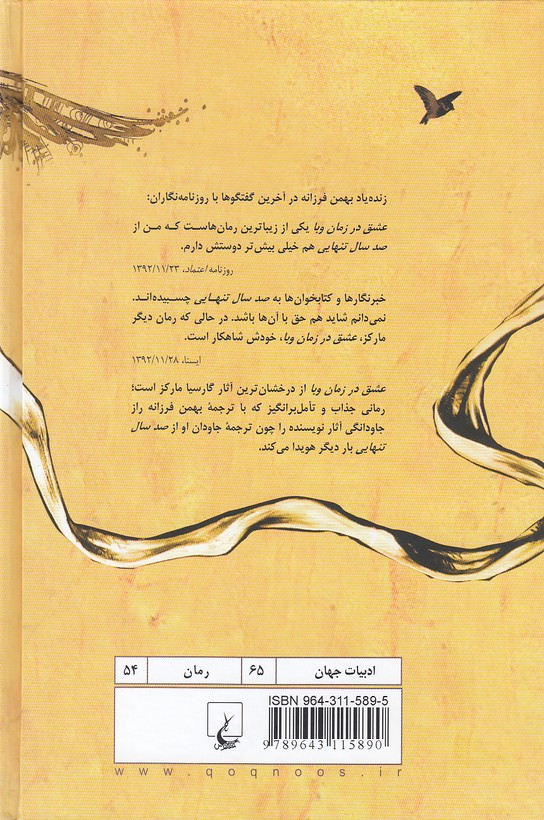 زنده‌یاد بهمن فرزانه در آخرین گفتگوها با روزنامه‌نگاران:
عشق در زمان وبا یکی از زیباترین رمان‌هاست که من از
صد سال تنهایی هم خیلی بیش‌تر دوستش دارم.
روزنامه اعتماد، ۱۳۹۲/۱۱/۲۳
خبرنگارها و کتابخوان‌ها به صد سال تنهایی چسبیده‌اند.
نمی‌دانم شاید هم حق با آن‌ها باشد. در حالی که رمان دیگر
مارکز، عشق در زمان وبا، خودش شاهکار است.
ایسنا، ۱۳۹۲/۱۱/۲۸
عشق در زمان وبا از درخشان‌ترین آثار گارسیا مارکز است؛
رمانی جذاب و تأمل‌برانگیز که با ترجمهٔ بهمن فرزانه راز
جاودانگی آثار نویسنده را چون ترجمهٔ جاودان او از صد سال
تنهایی بار دیگر هویدا می‌کند.
ادبیات جهان ۶۵ رمان ۵۴
ISBN 964-311-589-5
9789643115890
www.qoqnoos.ir